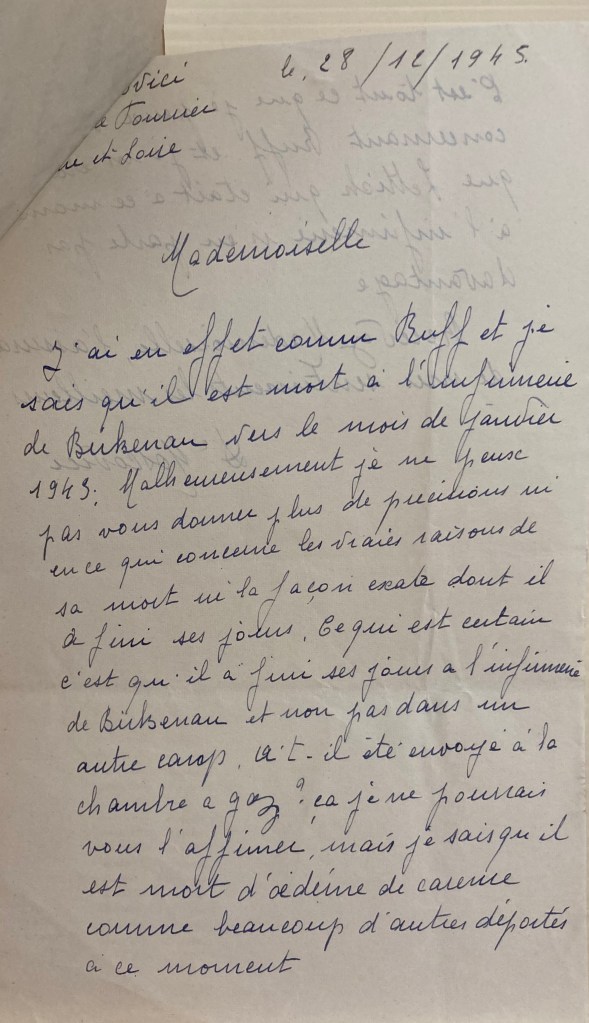 le, 28/12/1945.
ovici
a Fournier
re et Loire
Mademoiselle
J'ai en effet connu Ruff et je
sais qu'il est mort à l'infirmerie
de Birkenau vers le mois de janvier
1943; Malheureusement je ne peux
pas vous donner plus de precisions ni
en ce qui concerne les vraies raisons de
sa mort ni la façon exate dont il
à fini ses jours. Ce qui est certain
c'est qu'il à fini ses jours a l'infirmerie
de Birkenau et non pas dans un
autre camp. A't-il été envoyé à la
chambre a gaz? ça je ne pourrais
vous l'affimer, mais je sais qu'il
est mort d'œdéme de carence
comme beaucoup d'autres déportés
à ce moment